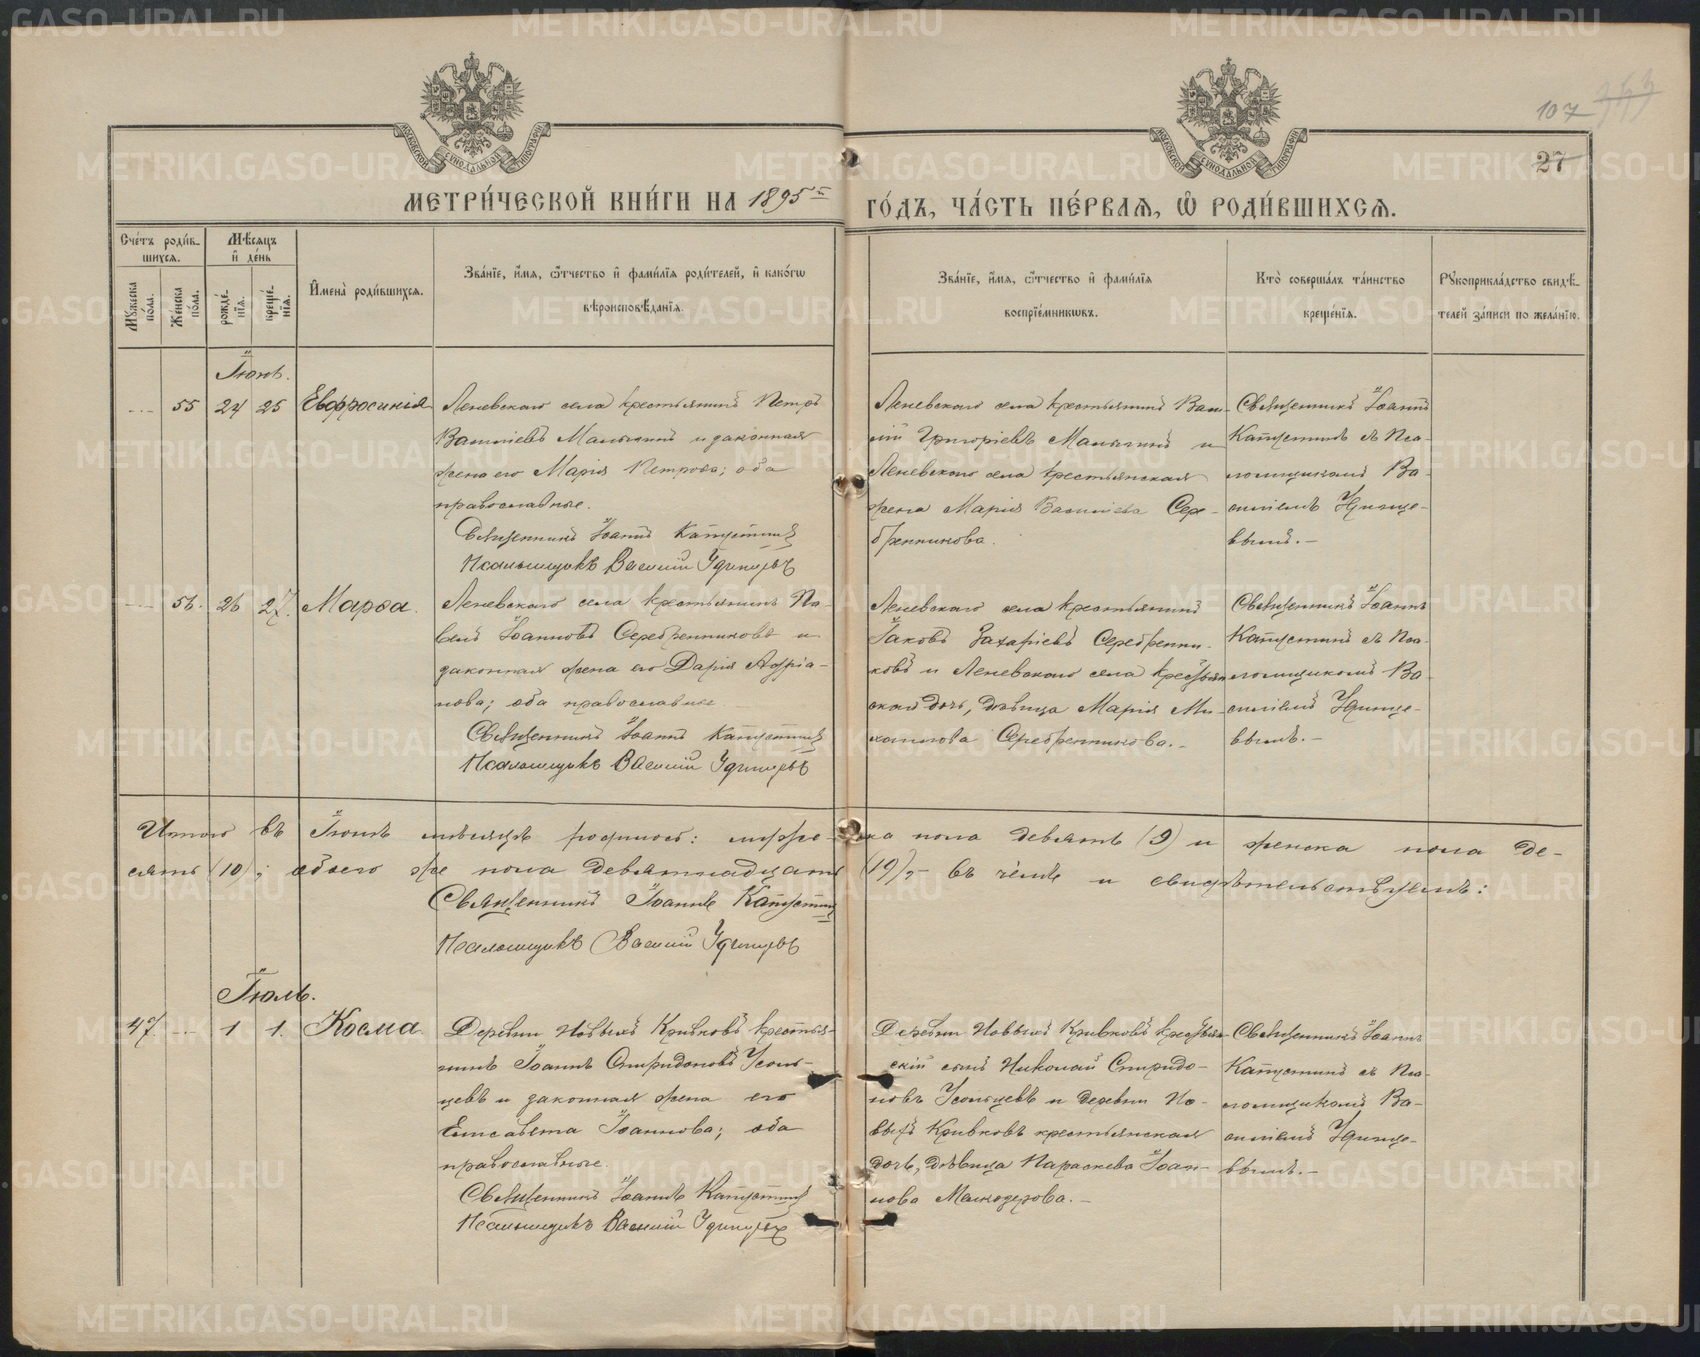 107
27
МЕТРИ́ЧЕСКОЙ КНИ́ГИ НА 1895й ГО́ДЪ, ЧА́СТЬ ПЕ́РВАЯ, Ѡ РОДИ́ВШИХСЯ.
Сче́тъ роди́в-
шихся.
Мѣ́сяцъ
и҆ де́нь
Мꙋ́жеска по́ла.
Же́нска по́ла.
рожде́-
нїѧ.
креще́-
нїѧ.
И҆мена̀ роди́вшихсѧ.
Зва́нїе, и҆́мѧ, ѻ҆́тчество и҆ фами́лїѧ роди́телей, и҆ како́гѡ
вѣроисповѣ́данїѧ.
Зва́нїе, и҆́мѧ, ѻ҆́тчество и҆ фами́лїѧ
воспрїе́мникѡвъ.
Кто̀ соверша́лъ та́инство
креще́нїѧ.
Рꙋкоприкла́дство свидѣ́-
телей за́писи по жела́нїю.
Іюнь.
55 24 25 Евфросинія
Леневскаго села крестьянинъ Петръ
Васильевъ Малыгинъ и законная
жена его Марія Петрова; оба
православные.
Священникъ Іоаннъ Капустинъ
Псаломщикъ Василий Удинцевъ
Леневскаго села крестьянинъ Васи-
лій Григоріевъ Малыгинъ и
Леневскаго села крестьянская
жена Марія Васильева Сере-
бренникова.
Священникъ Іоаннъ
Капустинъ съ Пса-
ломщикомъ Ва-
силіемъ Удинце-
вымъ.-
56. 26 27. Марѳа.
Леневскаго села крестьянинъ Па-
велъ Іоанновъ Серебренниковъ и
законная жена его Дарія Андріа-
нова; оба православные
Священникъ Іоаннъ Капустинъ
Псаломщикъ Василій Удинцевъ
Леневскаго села крестьянинъ
Іаковъ Захаріевъ Серебренни-
ковъ и Леневскаго села крестьян-
ская дочь, дѣвица Марія Ми-
хаилова Серебренникова.-
Священникъ Іоаннъ
Капустинъ съ Пса-
ломщикомъ Ва-
силіемъ Удинце-
вымъ.-
Итого въ Іюнѣ мѣсяцѣ родилось: мужеска пола девять (9) и женска пола де-
сять (10); обоего же пола девятнадцать (19),- въ чёмъ и свидѣтельствуемъ:
Священникъ Іоаннъ Капустинъ
Псаломщикъ Василій Удинцевъ
Іюль.
47 1 1. Косма.
Деревни Новыхъ Кривковъ крестья-
нинъ Іоаннъ Спиридоновъ Усоль-
цевъ и законная жена его
Елисавета Іоаннова; оба
православные.
Священникъ Іоаннъ Капустинъ
Псаломщикъ Василій Удинцевъ
Деревни Новыхъ Кривковъ крестьян-
скій сынъ Николай Спиридо-
новъ Усольцевъ и деревни Но-
выхъ Кривковъ крестьянская
дочь, дѣвица Параскева Іоан-
нова
Священникъ Іоаннъ
Капустинъ съ Пса-
ломщикомъ Ва-
силіемъ Удинце-
вымъ.-
METRIKI.GASO-URAL.RU